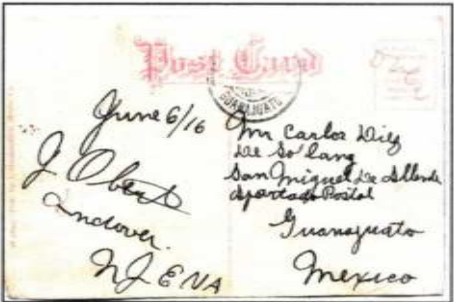 Post Card
GUANAJUATO
June 6/16
J. Obert
Andover.
N.J. E UA
Mr Carlos Diez
De So'lang
San Miguel De Allende
Apartado Postal
Guanaguato
Mexico